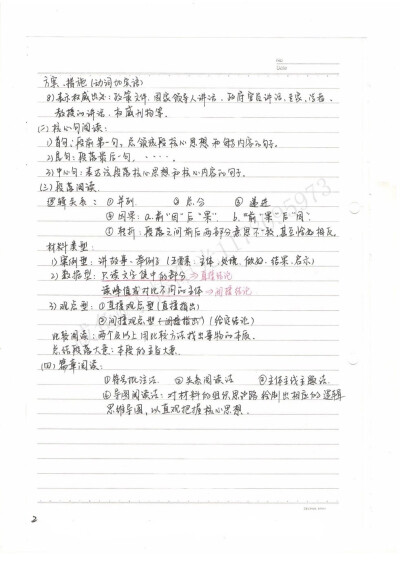 方案、措施(动词+宾语)
8)表示权威出处:政策文件、国家领导人讲话、政府官员讲话、专家、学者、
教授的讲话、权威刊物等。
(二)核心句阅读:
1)首句:段前第一句。总领该段核心思想和内容的句子。
2)尾句:段落最后一句,·····。
3)中心句:表达该段落核心思想和核心内容的句子。
(三)段落阅读
逻辑关系:①并列 ②总分 ③递进
④因果:a.前"因"后"果" b."前"果"后"因"
⑤转折:段落之间前后两部分意思不一致,甚至恰好相反。
材料类型:
1)案例型:讲故事、举例子(要素:主体、处境、做法、结果、启示)
2)数据型:只读文字集中的部分⇒直接结论
读峰值或对比不同的主体⇒间接结论
3)观点型:①直接观点型(直接指出)
②间接观点型(间接指出)(给完结论)
比较阅读:两个及以上用比较方法找出事物的本质。
总结段落大意:本段的主旨大意。
(四)篇章阅读:
①符号批注法 ②关系阅读法 ③主体主线主题法
④导图阅读法:对材料的组织思路绘制出相应的逻辑
思维导图,以直观把握核心思想。
2